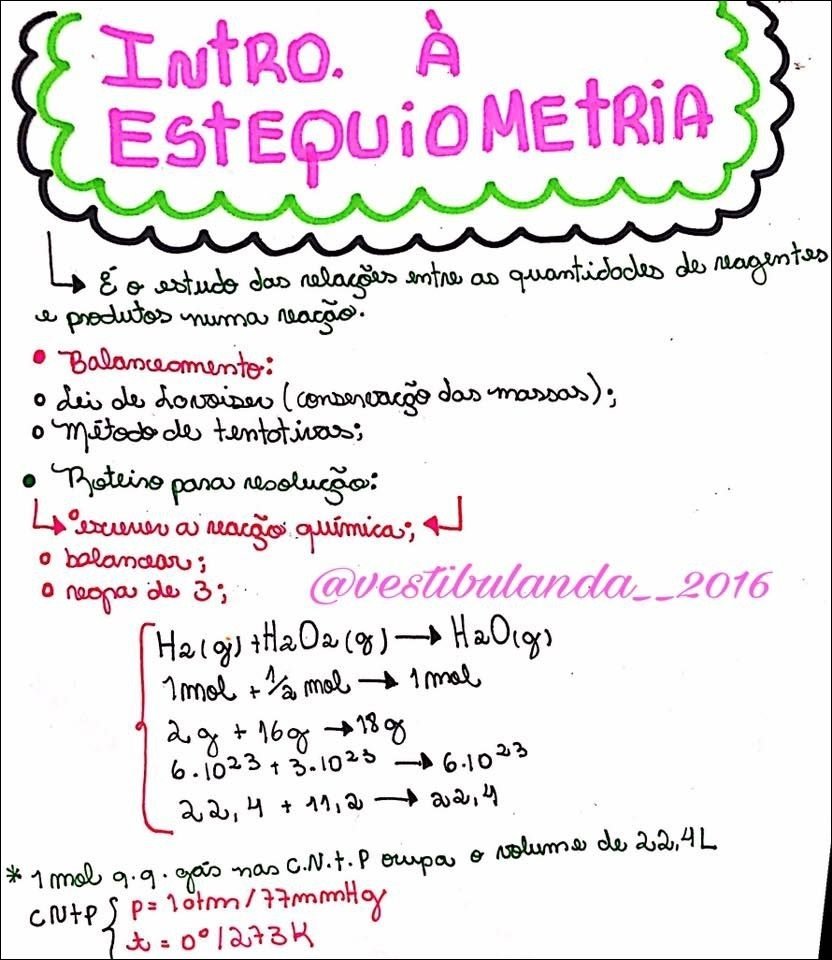 INTRO. À
ESTEQUIOMETRIA
É o estudo das relações entre as quantidades de reagentes
e produtos numa reação.
• Balanceamento:
o Lei de Lavoiser (conservação das massas);
o Método de tentativas;
• Roteiro para resolução:
o escrever a reação química;
o balancear;
o regra de 3;
@vestibulanda__2016
H2(g) + H2O2(g) → H2O(g)
1mol + 1/2 mol → 1mol
2g + 16g → 18g
6.10²³ + 3.10²³ → 6.10²³
22,4 + 11,2 → 22,4
* 1mol q.q. gás nas C.N.T.P ocupa o volume de 22,4L
CNTP { P = 1atm / 77mmHg
t = 0° / 273K